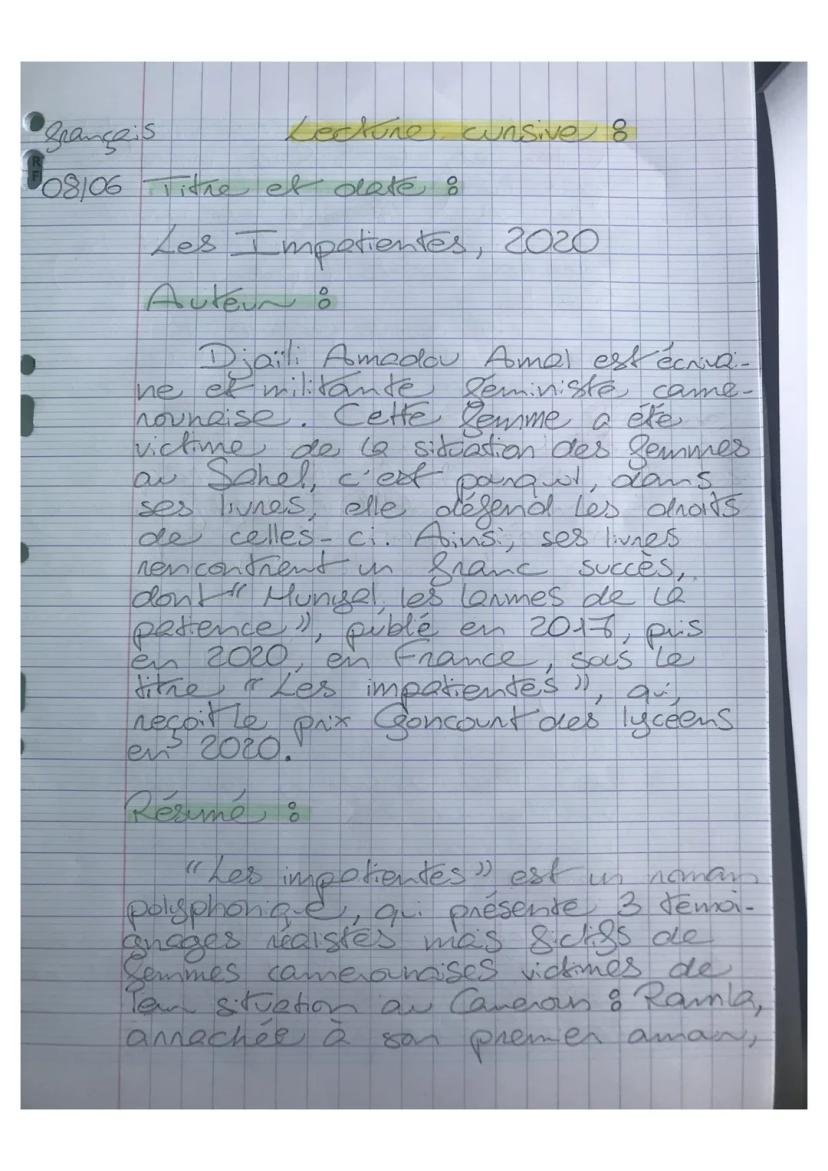 français Lecture cursive :
08/06 Titre et date :
Les Impatientes, 2020
Auteur :
Djaïli Amadou Amal est écrivai-
ne et militante féministe came-
rounaise. Cette femme a été
victime de la situation des femmes
au Sahel, c'est pourquoi, dans
ses livres, elle défend les droits
de celles-ci. Ainsi, ses livres
rencontrent un franc succès,
dont "Munyal, les larmes de la
patience", publié en 2017, puis
en 2020, en France, sous le
titre "Les impatientes", qui
reçoit le prix Goncourt des lycéens
en 2020.
Résumé :
"Les impatientes" est un roman
polyphonique, qui présente 3 témoi-
gnages réalistes mais fictifs de
femmes camerounaises victimes de
leur situation au Cameroun : Ramla,
arrachée à son premier amour,